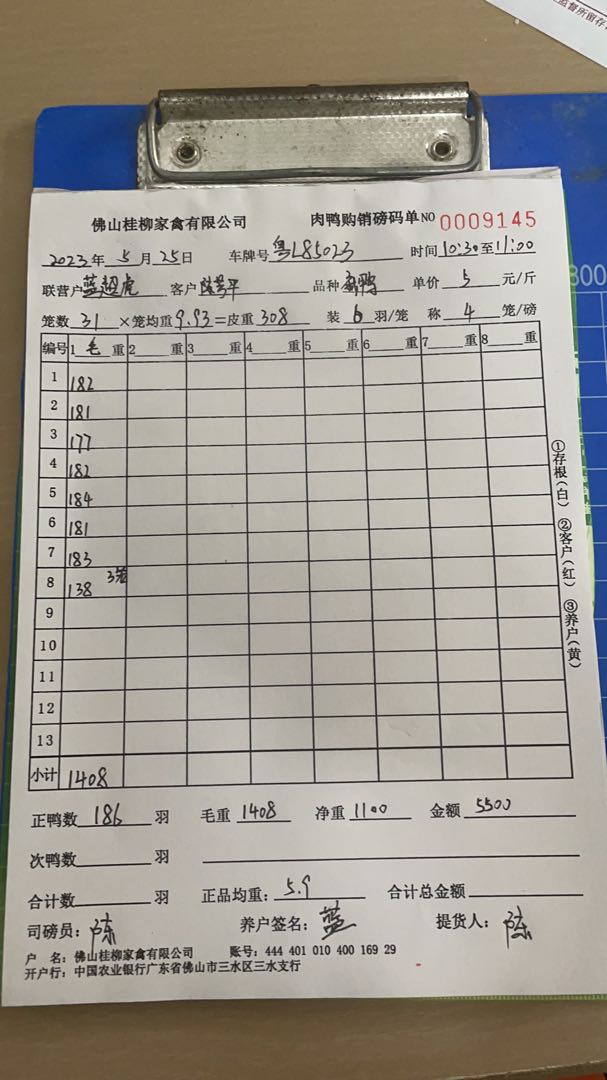 监督所留存
佛山桂柳家禽有限公司 肉鸭购销磅码单 NO 0009145
2023年 5月 25日 车牌号 粤L85023 时间 10:30至11:00
联营户 蓝超虎 客户 品种 鸭 单价 5 元/斤
笼数 31 ×笼均重 9.93 =皮重 308 装 6 羽/笼 称 4 笼/磅
编号 1 毛 重 2 重 3 重 4 重 5 重 6 重 7 重 8 重
1 182
2 181
3 177
4 182
5 184
6 181
7 183
8 138 3笼
9
10
11
12
13
小计 1408
正鸭数 186 羽 毛重 1408 净重 1100 金额 5500
次鸭数 羽
合计数 羽 正品均重: 5.9 合计总金额
司磅员: 陈 养户签名: 蓝 提货人: 陈
户 名: 佛山桂柳家禽有限公司 账号: 444 401 010 400 169 29
开户行: 中国农业银行广东省佛山市三水区三水支行
①存根(白) ②客户(红) ③养户(黄)
300